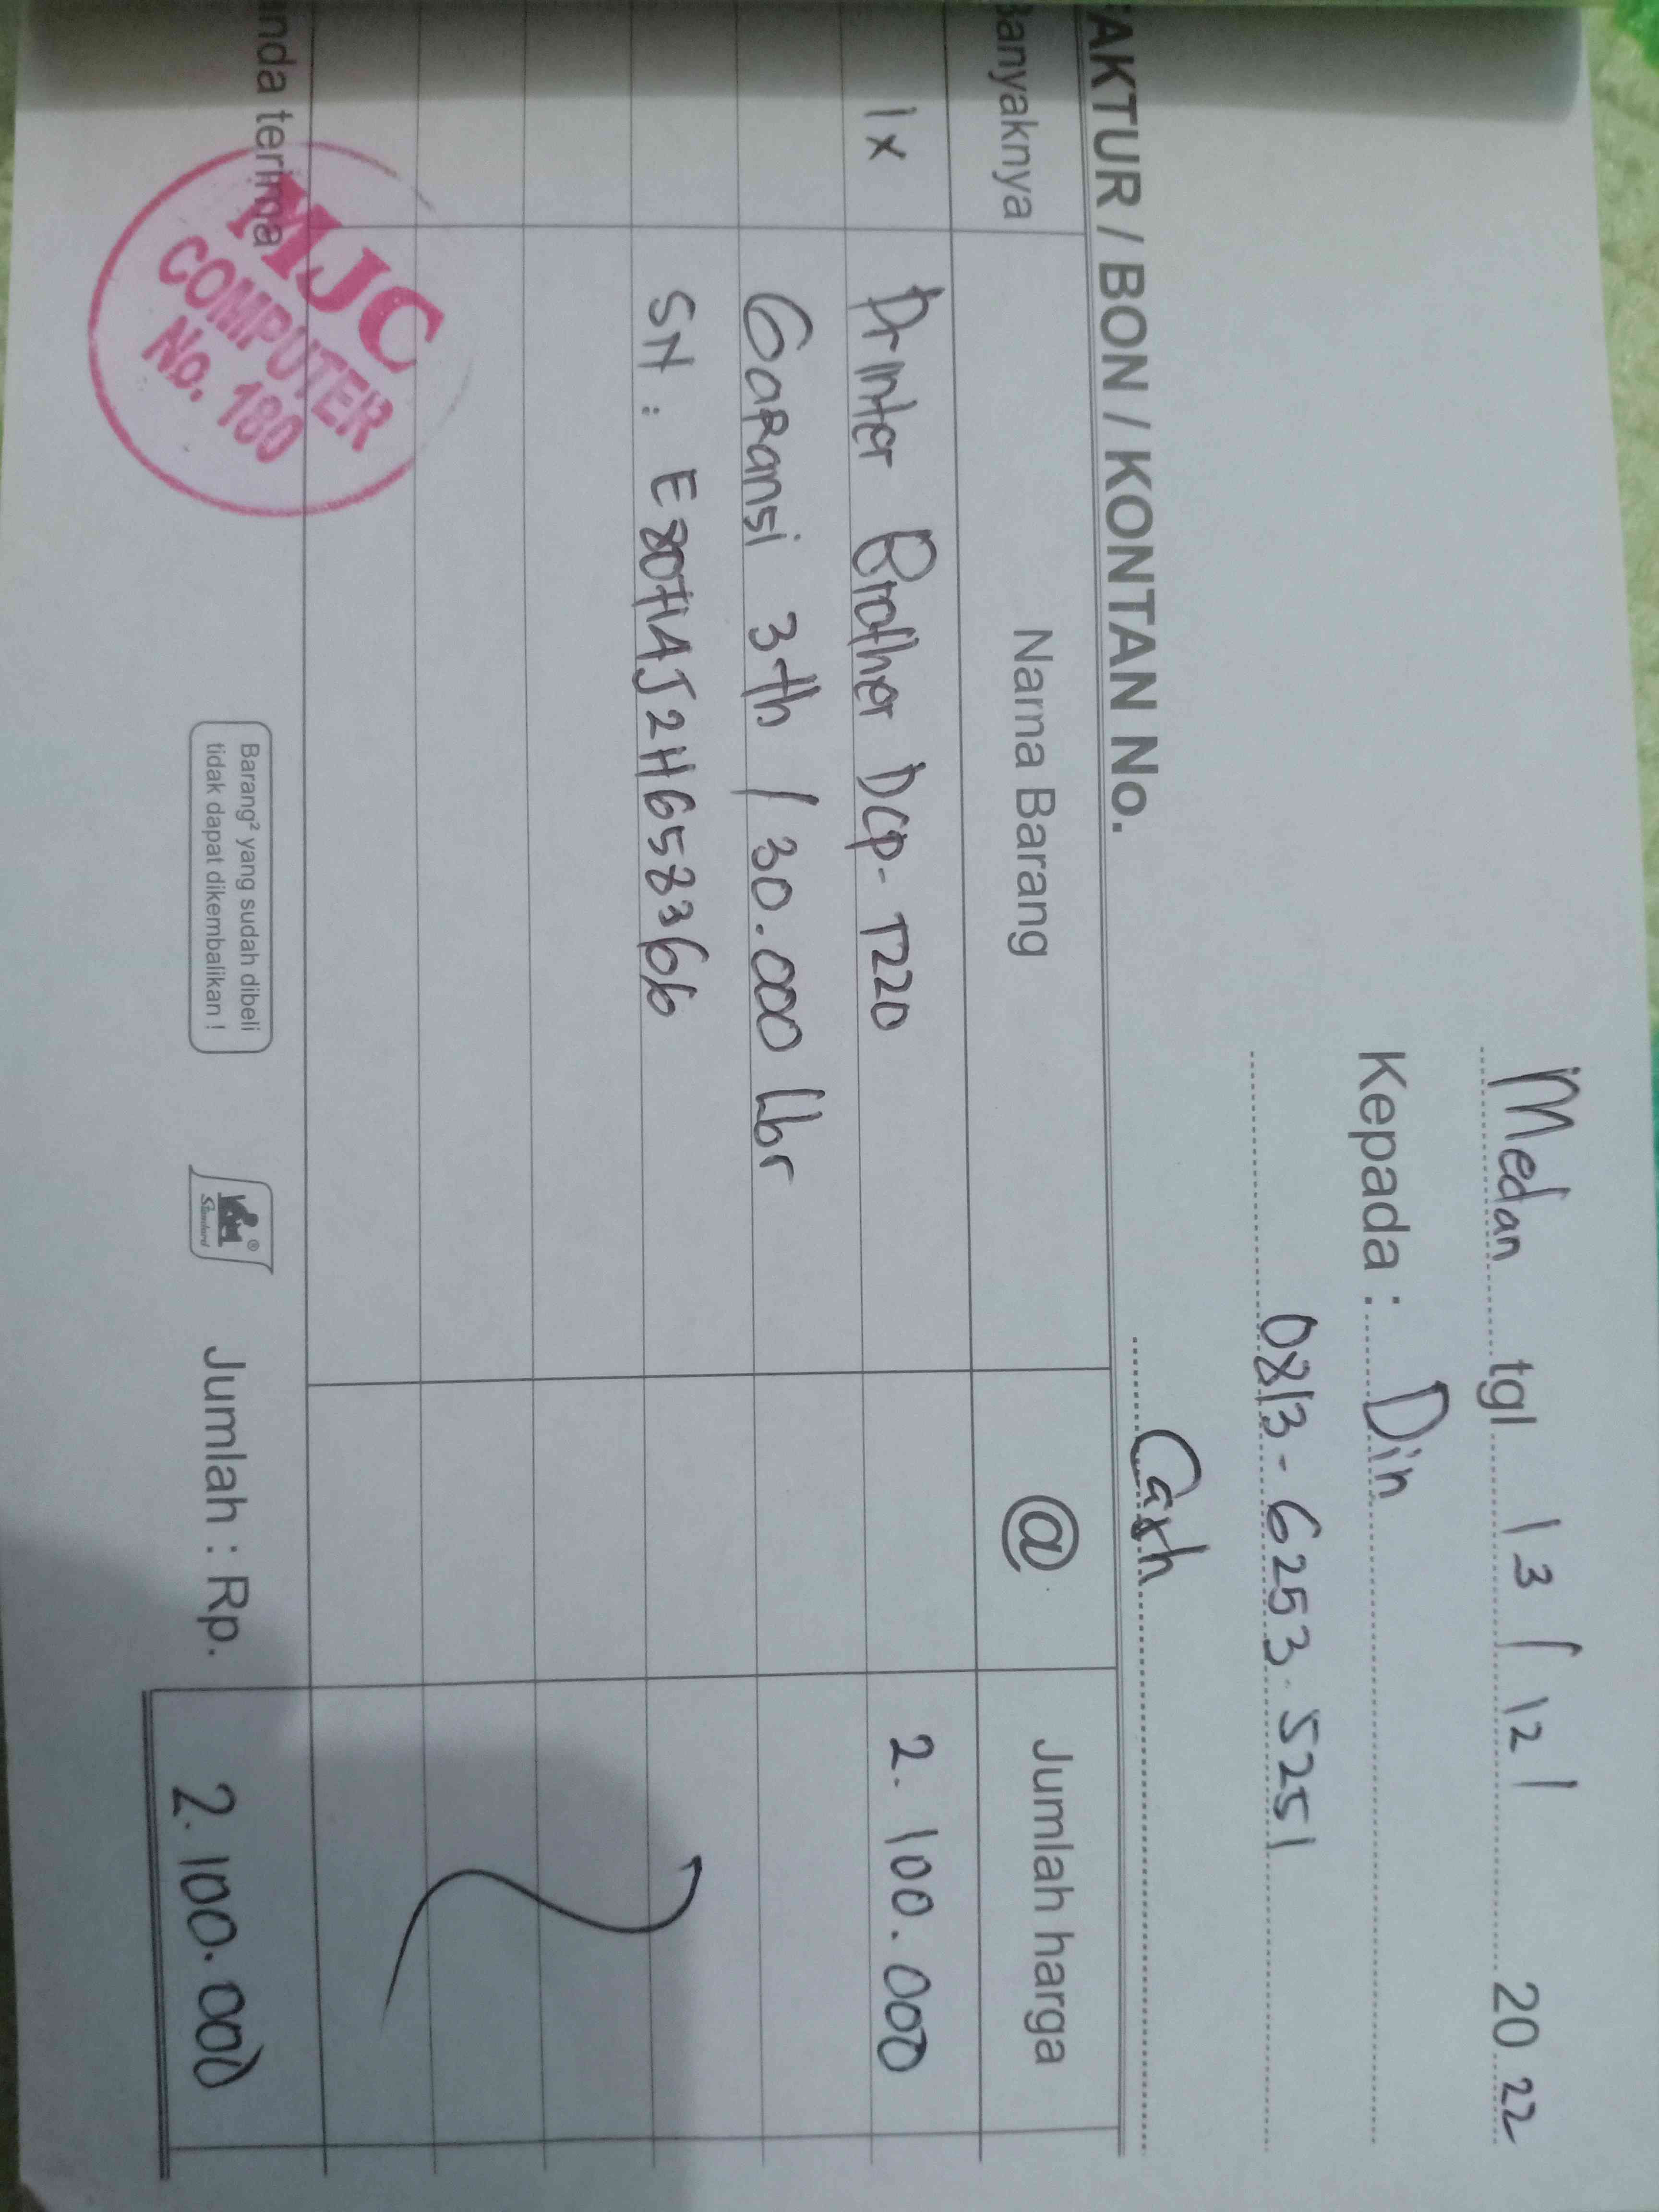 Medan tgl 13 / 12 / 20 22
Kepada : Din
0813-6253-5251
AKTUR / BON / KONTAN No. Cash
Banyaknya Nama Barang @ Jumlah harga
1 x Printer Brother DCP-T220 2.100.000
Garansi 3 th / 30.000 lbr
SN : E80714J2H658366
nda terima Jumlah : Rp. 2.100.000
MJC
COMPUTER
No. 180
Barang² yang sudah dibeli
tidak dapat dikembalikan !
Standard